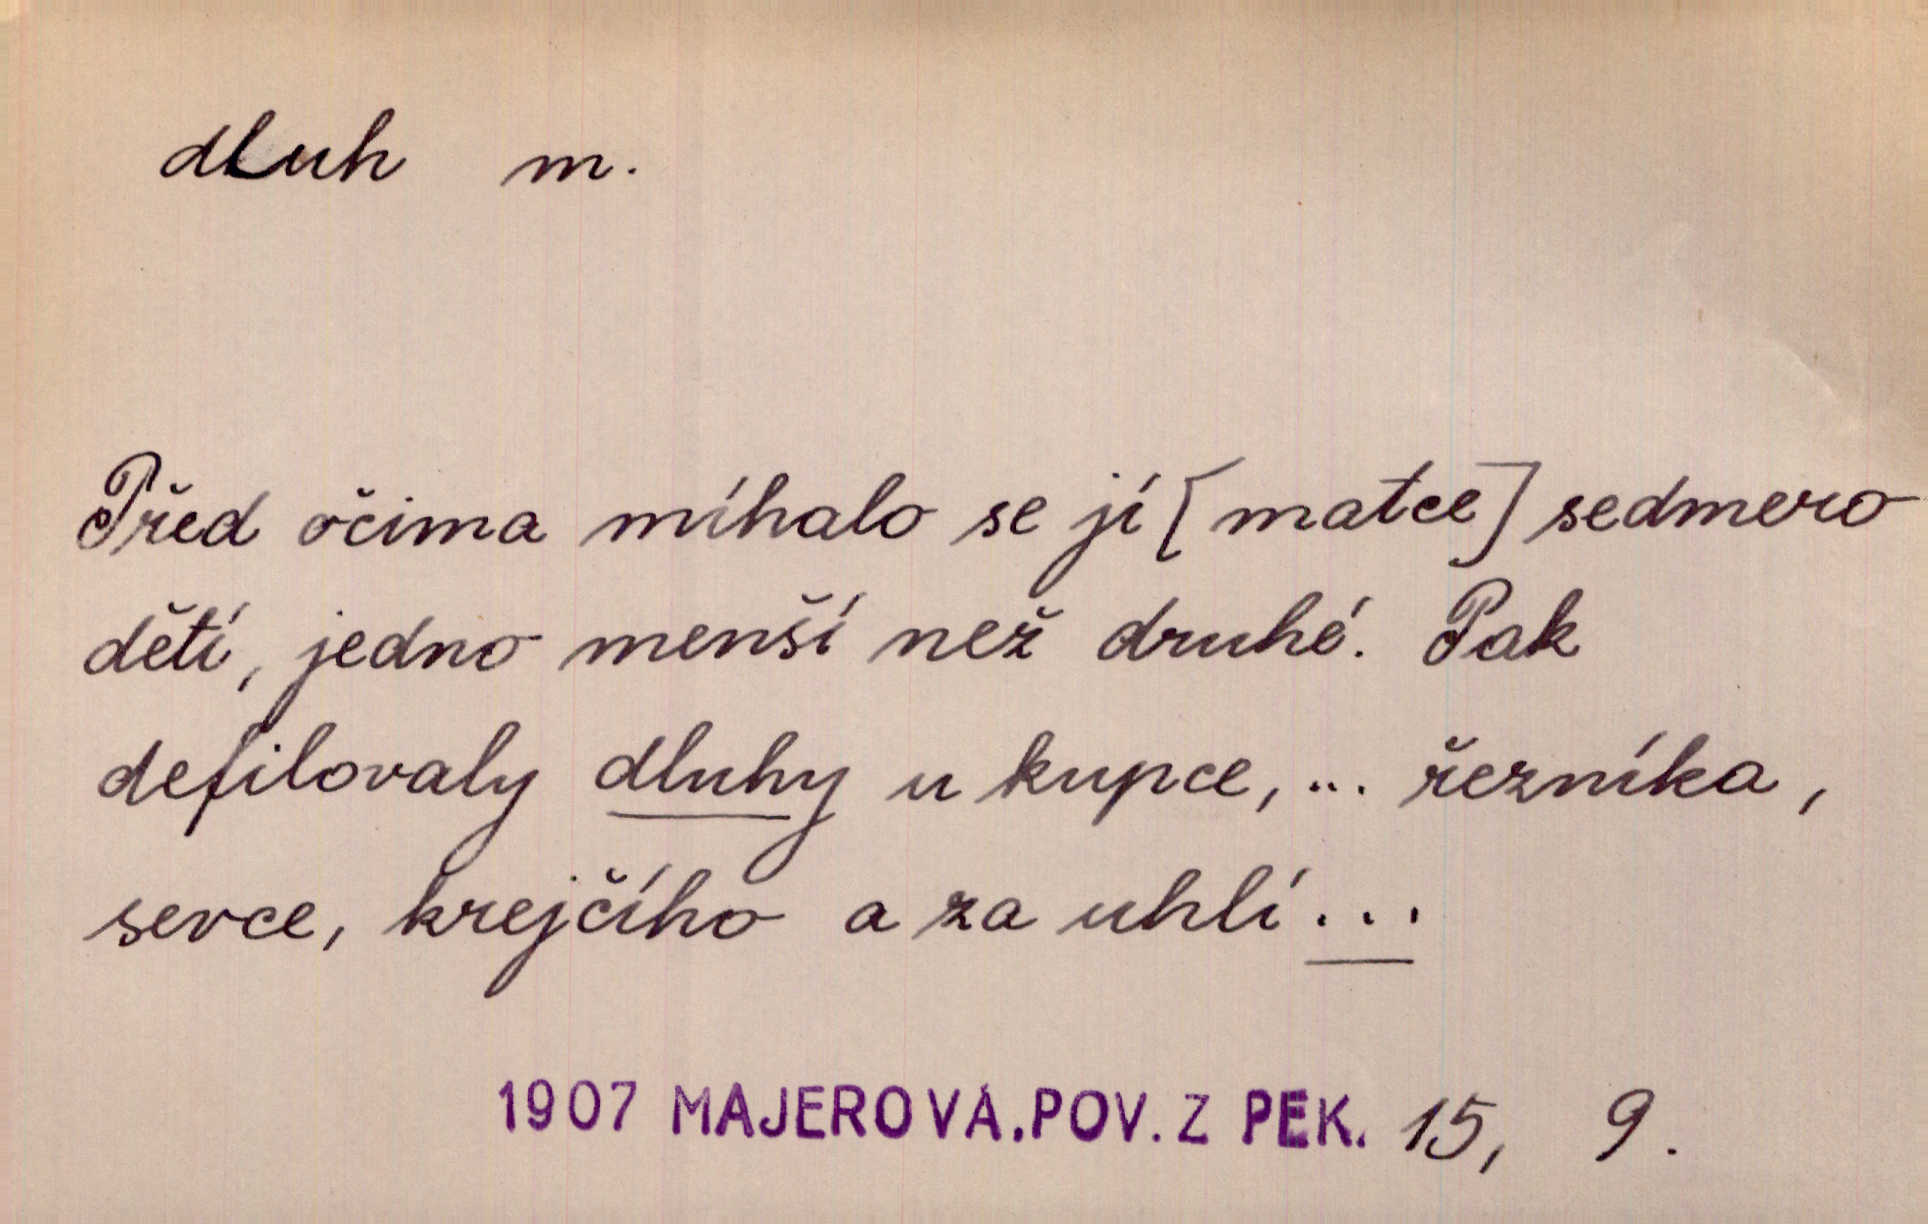 dluh m.
Před očima míhalo se jí [matce] sedmero
dětí, jedno menší než druhé. Pak
defilovaly dluhy u kupce, ... řezníka,
sevce, krejčího a za uhlí ...
1907 MAJEROVÁ.POV. Z PEK. 15, 9.